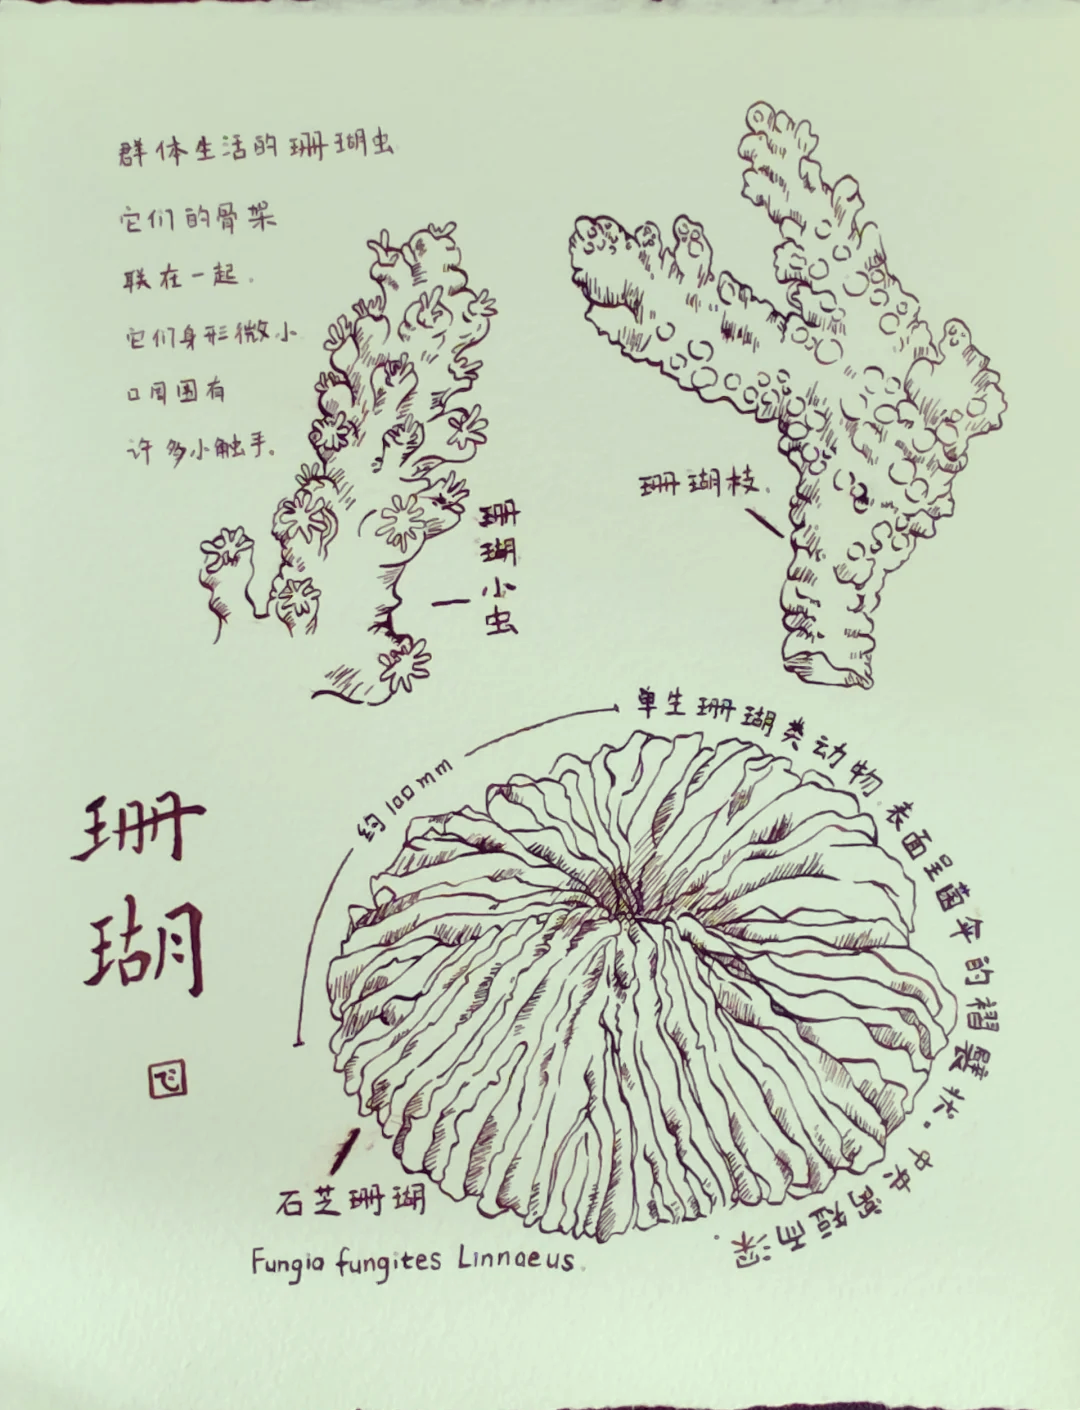 群体生活的珊瑚虫
它们的骨架
联在一起.
它们身形微小
口周围有
许多小触手。
珊瑚小虫
珊瑚枝.
单生珊瑚类动物.表面呈菌伞的褶襞状.中央沟短而深.
约100mm
珊瑚
飞
石芝珊瑚
Fungia fungites Linnaeus.